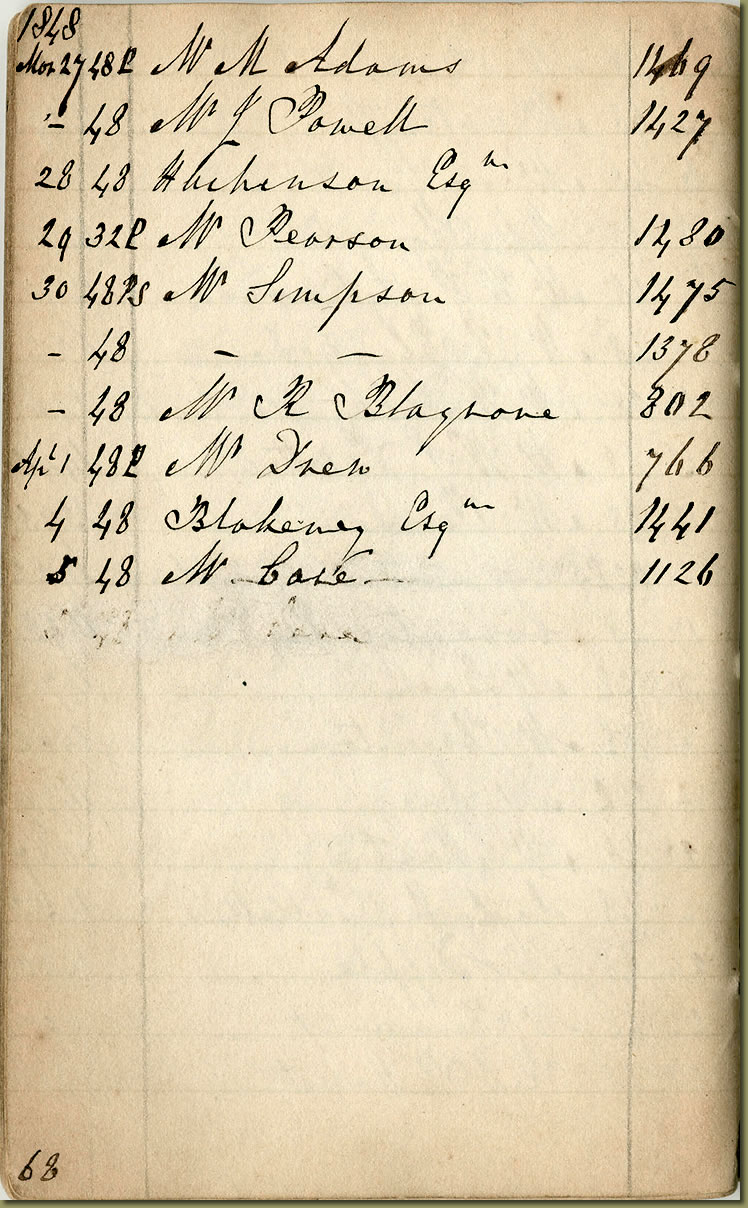 1848
Mar 27 48 P Mr M Adams 1469
" – 48 Mr J Powell 1427
28 48 Hutchinson Esqre
29 32 P Mr Pearson 1480
30 48 Ps Mr Simpson 1475
– 48 – – 1378
– 48 Mr R Blagrove 802
Apl 1 48 P Mr Drew 766
4 48 Blakeney Esqre 1441
5 48 Mr Case 1126
68